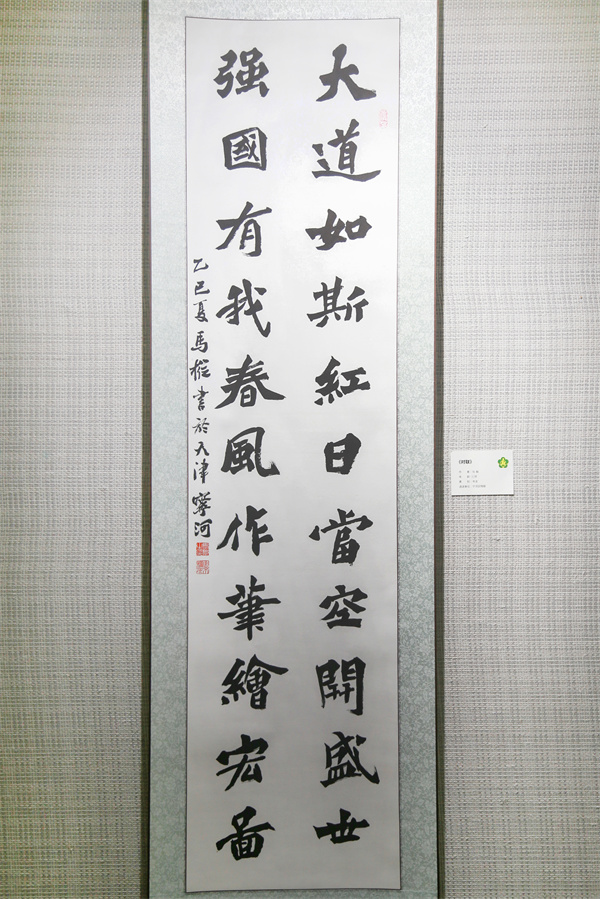 大道如斯紅日當空開盛世
强國有我春風作筆繪宏圖
乙巳夏馬樅書於天津寧河
《對聯》